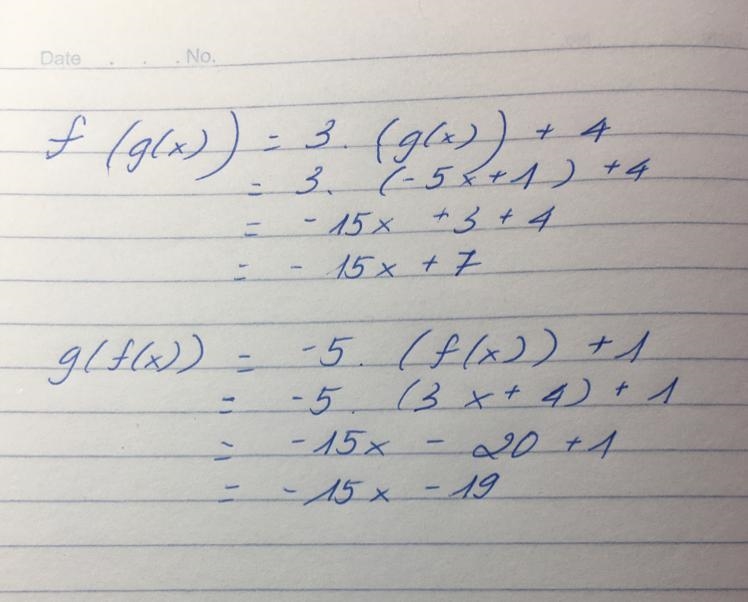 Date . . . No.
f (g(x)) = 3. (g(x)) + 4
= 3. (-5x+1) +4
= -15x +3 + 4
= - 15x + 7
g(f(x)) = -5. (f(x)) +1
= -5. (3x + 4) + 1
= -15x - 20 +1
= -15x -19